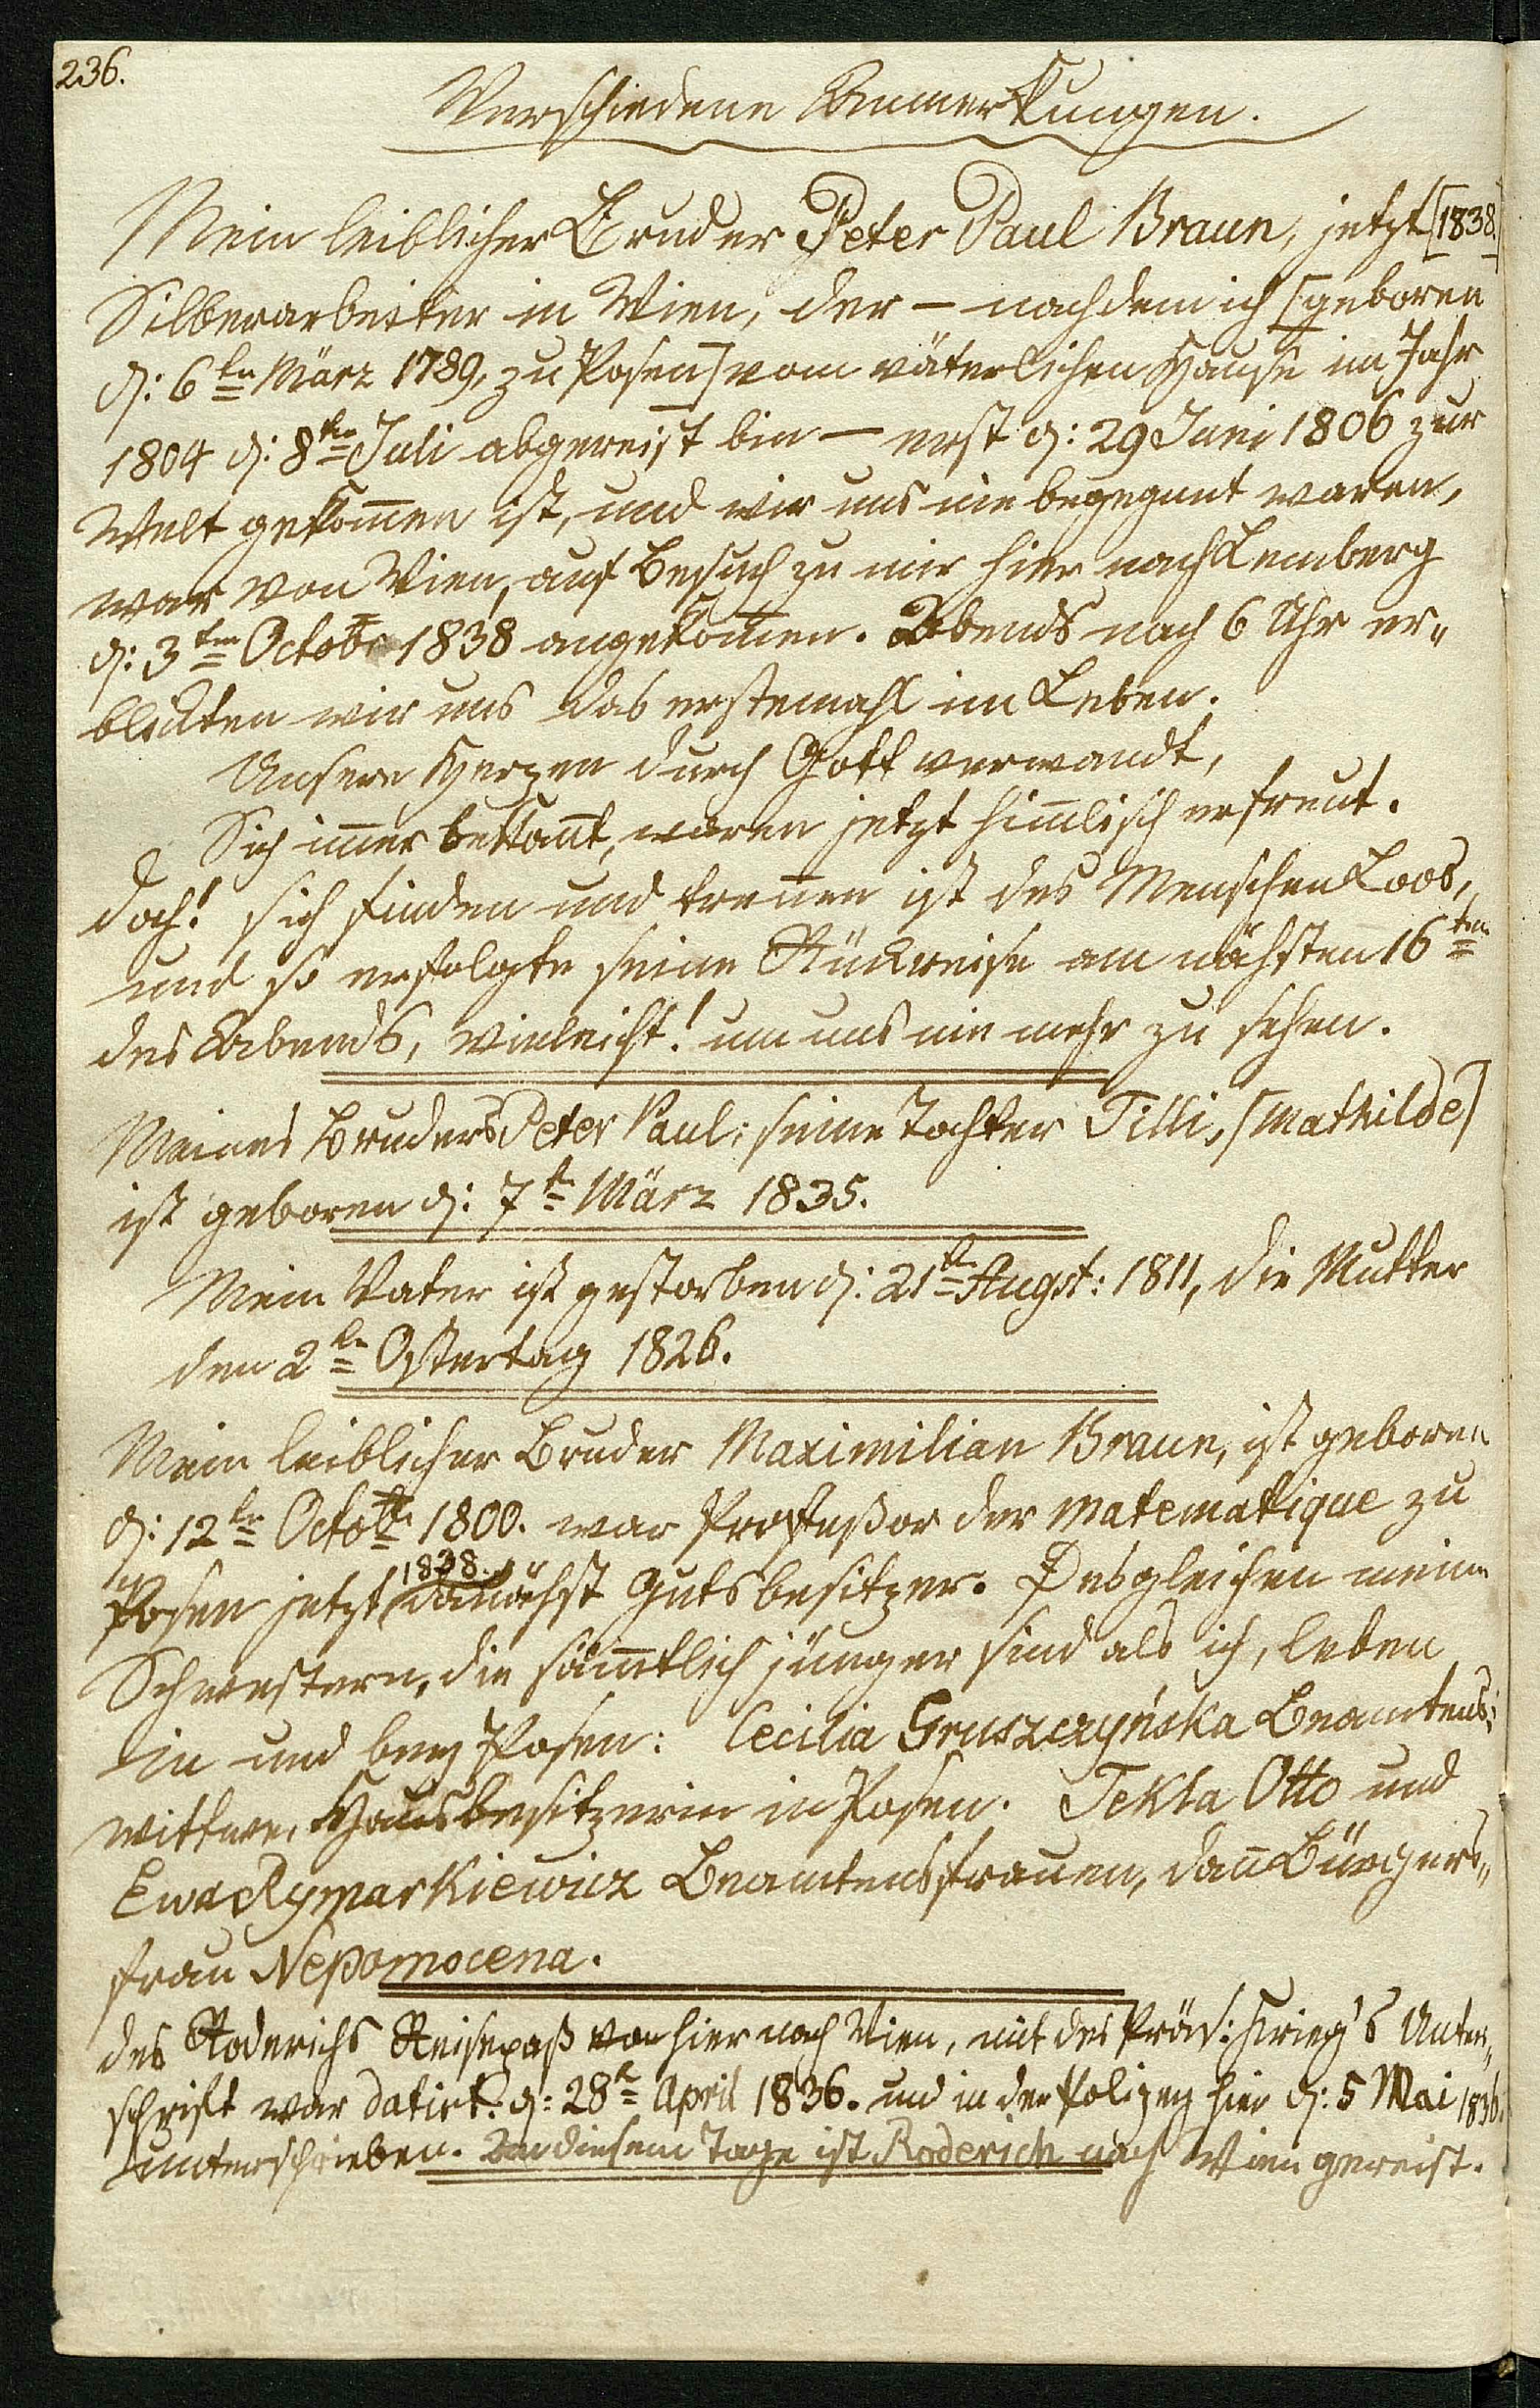 236.
Verschiedene Anmerkungen.
Mein leiblicher Bruder Peter Paul Braun, jetzt [1838.]
Silberarbeiter in Wien, der – nachdem ich [geboren
d: 6ten März 1789, zu Posen] vom väterlichen Hause im Jahr
1804 d: 8ten Juli abgereist bin – erst d: 29 Juni 1806 zur
Welt gekom̅en ist, und wir uns nie begegnet waren,
war von Wien, auf Besuch zu mir hier nach Lemberg
d: 3ten Octobr 1838 angekom̅en. Abends nach 6 Uhr er„
blickten wir uns das erstemahl im Leben.
Unsere Herzen durch Gott verwandt,
Sich im̅er bekan̅t, waren jetzt him̅lisch erfreut.
doch! sich finden und tren̅en ist des Menschen Loos,
und so erfolgte seine Rückreise am nächsten 16ten
des Abends, vieleicht! um uns nie mehr zu sehen.
Meines Bruders Peter Paul: seine Tochter Tilli, [Mathilde]
ist geboren d: 7t März 1835.
Mein Vater ist gestorben d: 21tn Augst: 1811, die Mutter
den 2tn Ostertag 1826.
Mein leiblicher Bruder Maximilian Braun, ist geboren
d: 12tn Octobr 1800. war Profeßor der Matematique zu
Posen jetzt 1838. danächst Gutsbesitzer. Desgleichen meine
Schwestern, die säm̅tlich jünger sind als ich, leben
in und bey Posen: Cecilia Gruszczyńska Beamtens:
wittwe, Hausbesitzerin in Posen. Tekla Otto und
Ewa Rymarkiewicz Beamtensfrauen, dan̅ Bürgers„
frau Nepomocena.
des Roderichs Reisepaß von hier nach Wien, mit des Präs: Krieg's Unter„
schrift war datirt: d: 28t April 1836. und in der Polizey hier d: 5 Mai 1836.
unterschrieben. An diesem Tage ist Roderich nach Wien gereist.